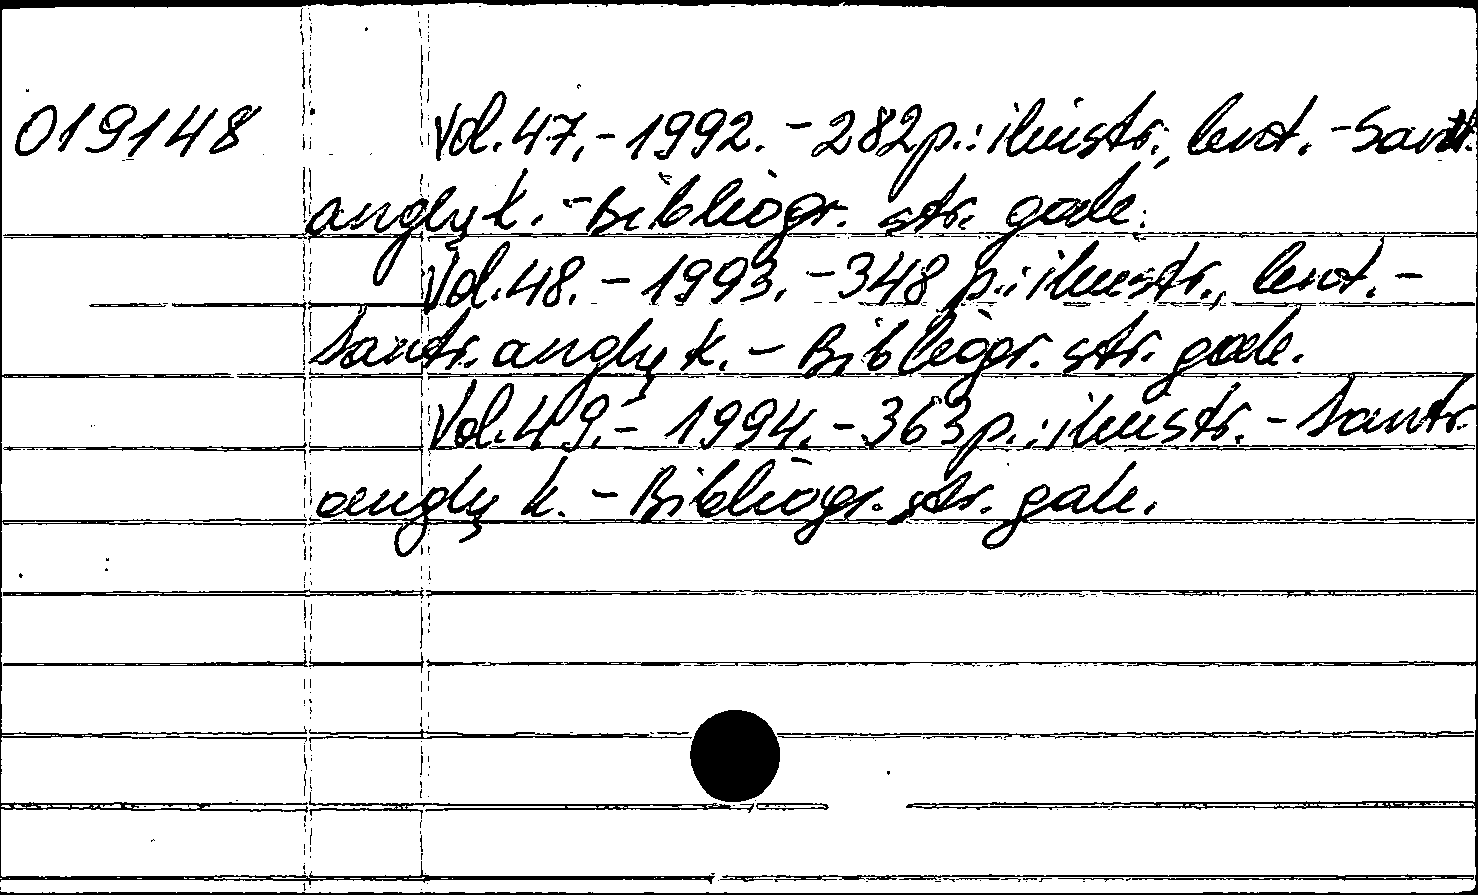 019148 Vol.47.-1992.-282p.:iliustr., lent.-Santr.
anglų k.-Bibliogr. str. gale.
Vol.48.-1993.-348 p.:iliustr., lent.-
Santr. anglų k.-Bibliogr. str. gale.
Vol.49.-1994.-363p.:iliustr.-Santr.
anglų k.-Bibliogr. str. gale.